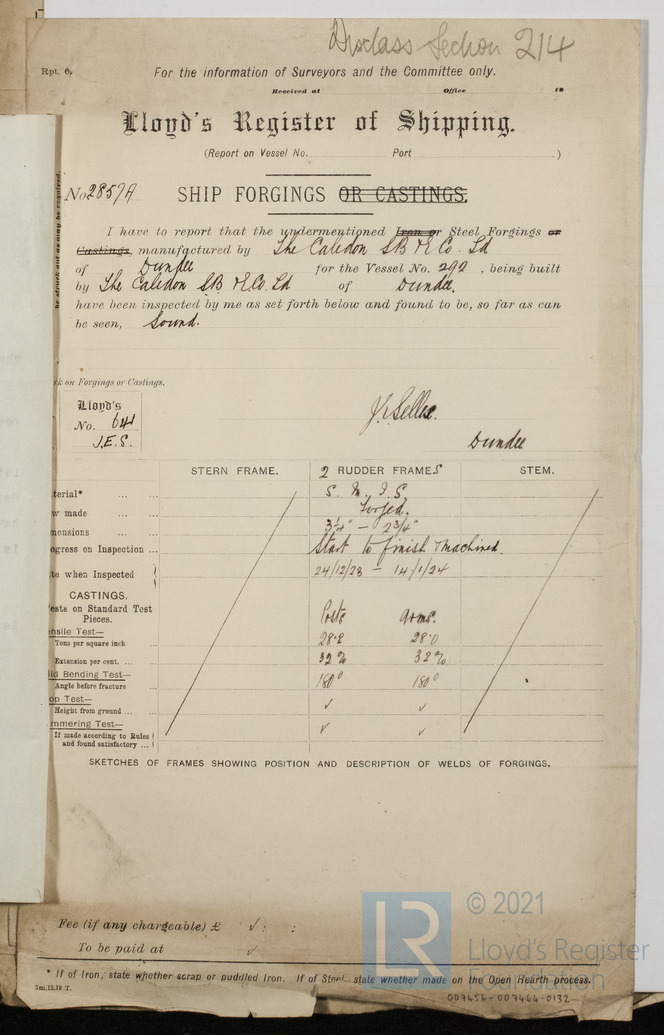 Section 214
Rpt. 6.
For the information of Surveyors and the Committee only.
Received at Office 19
Lloyd's Register of Shipping.
(Report on Vessel No. Port .)
No 2857A SHIP FORGINGS OR CASTINGS.
I have to report that the undermentioned Iron or Steel Forgings or
Castings, manufactured by The Caledon SB & E Co. Ld
of Dundee for the Vessel No. 292, being built
by The Caledon SB & E Co. Ld of Dundee,
have been inspected by me as set forth below and found to be, so far as can
be seen, Sound.
be struck out as may be required.
rk on Forgings or Castings.
Lloyd's
No. 641
J.E.S.
Dundee
STERN FRAME. 2 RUDDER FRAMES STEM.
terial* ... ... S. M. I. S.
w made ... ... Forged.
mensions ... ... 3¼" — 2¾"
ogress on Inspection ... Start to finish & machined.
te when Inspected 24/12/23 — 14/1/24
CASTINGS.
ests on Standard Test
Pieces. Posts arms.
ensile Test—
Tons per square inch 28.2 28.0
Extension per cent. ... 32% 32%
ld Bending Test—
Angle before fracture 180° 180°
op Test—
Height from ground ... ✓ ✓
mmering Test—
If made according to Rules
and found satisfactory ... ✓ ✓
SKETCHES OF FRAMES SHOWING POSITION AND DESCRIPTION OF WELDS OF FORGINGS.
Fee (if any chargeable) £ ✓ : :
To be paid at ✓
* If of Iron, state whether scrap or puddled Iron. If of Steel, state whether made on the Open Hearth process.
2m,12.19 T.
© 2021
LR
Lloyd's Register
Foundation
007456-007464-0132